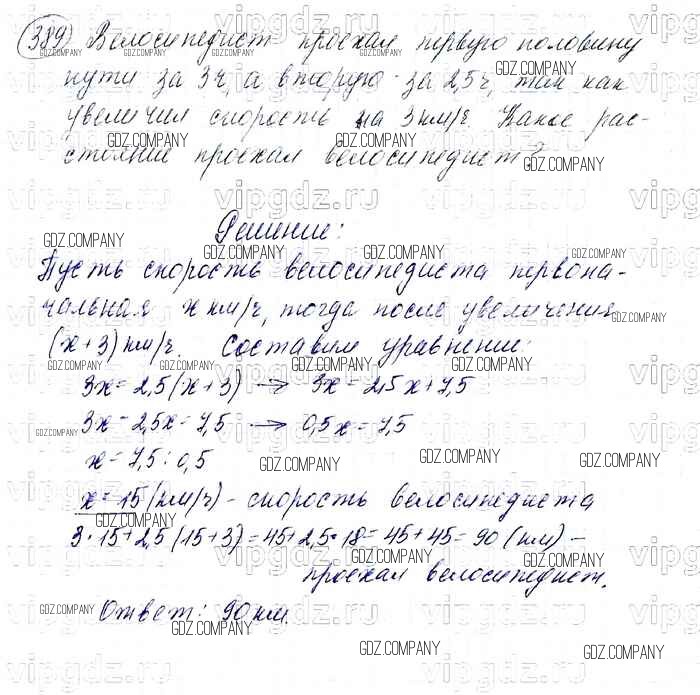 389) Велосипедист проехал первую половину
пути за 3ч, а вторую - за 2,5ч, так как
увеличил скорость на 3 км/ч. Какое рас-
стояние проехал велосипедист?
Решение:
Пусть скорость велосипедиста первона-
чальная x км/ч, тогда после увеличения
(x+3) км/ч. Составим уравнение:
3x = 2,5(x+3) → 3x = 2,5x+7,5
3x - 2,5x = 7,5 → 0,5x = 7,5
x = 7,5 : 0,5
x = 15 (км/ч) - скорость велосипедиста
3·15+2,5(15+3) = 45+2,5·18 = 45+45 = 90 (км) -
проехал велосипедист.
Ответ: 90 км.
GDZ.COMPANY
vipgdz.ru